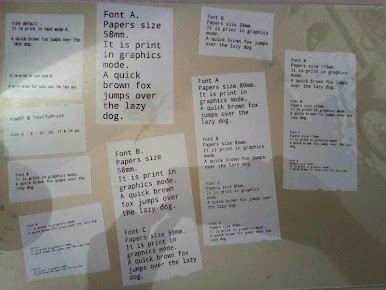 Font default.
It is print in text mode A.
A quick brown fox jumps over the
lazy dog.
It is print in text mode B.
A quick brown fox jumps over the lazy dog.
RawBT & TextToPrint
Font A
It is print in graphics mode.
A quick brown fox jumps over the
lazy dog.
Font B
It is print in graphics mode.
A quick brown fox jumps over the lazy dog.
Font A.
Papers size
58mm.
It is print
in graphics
mode.
A quick
brown fox
jumps over
the lazy
dog.
Font B.
Papers size
58mm.
It is print in
graphics mode.
A quick brown
fox jumps over
the lazy dog.
Font C
Papers size 58mm.
It is print in
graphics mode.
A quick brown fox
jumps over the lazy
dog.
Font D
Papers size 58mm.
It is print in graphics
mode.
A quick brown fox jumps
over the lazy dog.
Font A
Papers size 80mm.
It is print in
graphics mode.
A quick brown fox
jumps over the lazy
dog.
Font B
Papers size 80mm.
It is print in graphics
mode.
A quick brown fox jumps
over the lazy dog.
Font C
Papers size 80mm.
It is print in graphics mode.
A quick brown fox jumps over
the lazy dog.
Papers size 80mm.
It is print in graphics mode.
A quick brown fox jumps over the
lazy dog.
Font A
It is print in graphics
mode.
A quick brown fox jumps
over the lazy dog.
Font B
It is print in graphics mode.
A quick brown fox jumps over
the lazy dog.